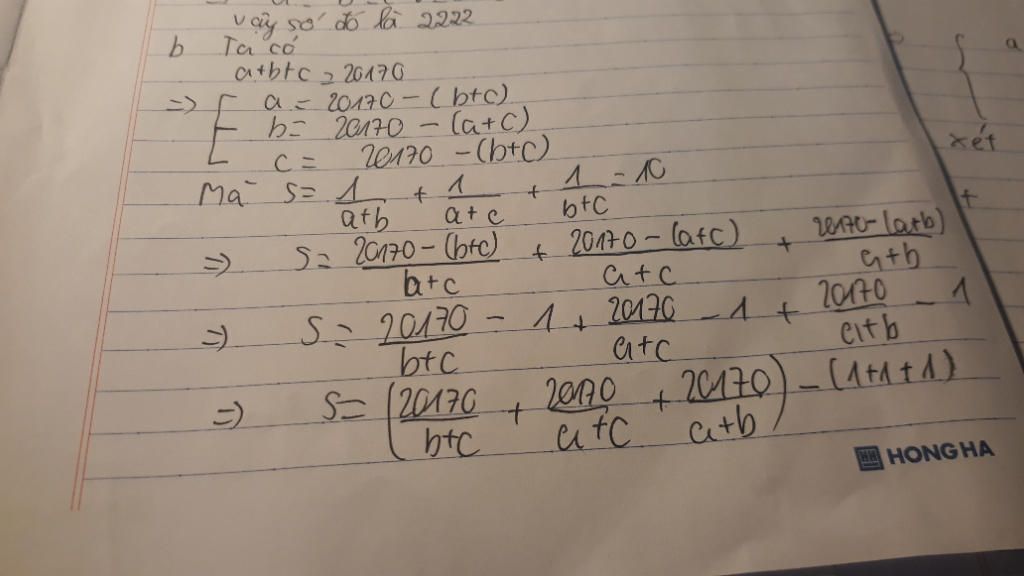 vậy số đó là 2222
b Ta có
a+b+c = 20170
=> [ a = 20170 - (b+c)
b = 20170 - (a+c)
c = 20170 - (b+c)
Mà S = 1/(a+b) + 1/(a+c) + 1/(b+c) = 10
=> S = (20170-(b+c))/(b+c) + (20170-(a+c))/(a+c) + (20170-(a+b))/(a+b)
=> S = 20170/(b+c) - 1 + 20170/(a+c) - 1 + 20170/(a+b) - 1
=> S = (20170/(b+c) + 20170/(a+c) + 20170/(a+b)) - (1+1+1)
HONG HA
{ a
xét
+